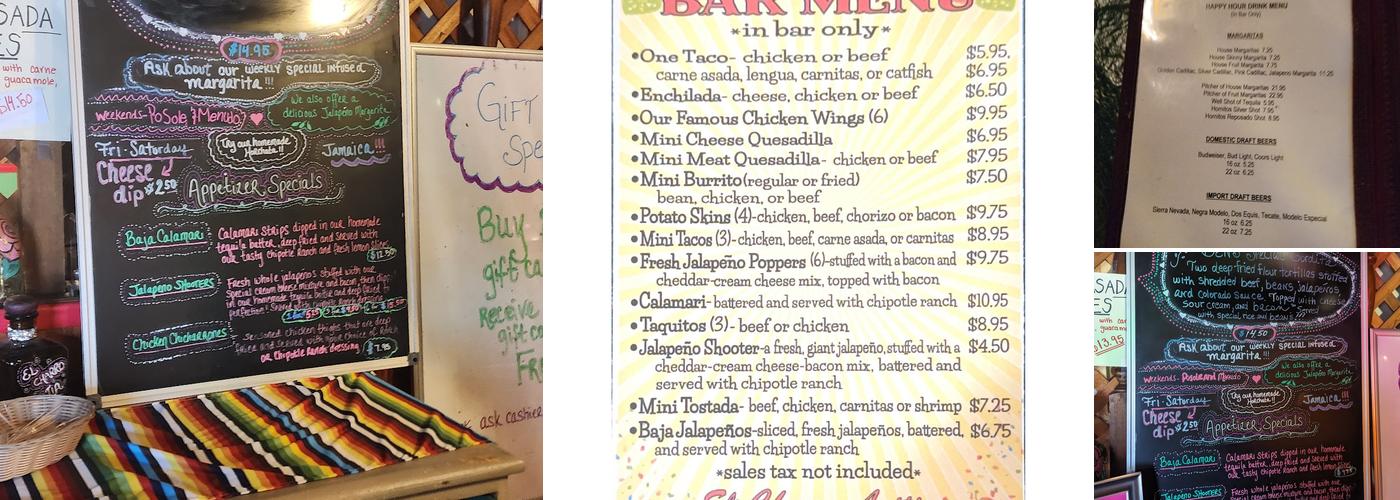 SADA
ES
with carne
guacamole,
$14.50
$14.95
Ask about our weekly special infused
margarita !!!
weekends-PoSole & Menudo
We also offer a
delicious Jalapeño Margarita
Fri-Saturday
Cheese
dip $2.50
Try our homemade
Horchata!!
Jamaica!!!
Appetizer Specials
Baja Calamari:
Calamari Strips dipped in our homemade
tequila batter, deep fried and served with
our tasty chipotle Ranch and fresh lemon slices.
Jalapeno Shooters:
Fresh whole jalapenos stuffed with our
special cream cheese mixture and bacon, then dipped
in our homemade tequila batter and deep fried to
perfection!
Chicken Chicharrones
- seasoned chicken thighs that are deep
fried and served with your choice of Ranch
or Chipotle Ranch dressing
EL
CHARRO
GIFT
Spe
Buy
gift ca
Receive
gift c
FR
ask cashier
BAR MENU
*in bar only*
•One Taco- chicken or beef $5.95.
carne asada, lengua, carnitas, or catfish $6.95
•Enchilada- cheese, chicken or beef $6.50
•Our Famous Chicken Wings (6) $9.95
•Mini Cheese Quesadilla $6.95
•Mini Meat Quesadilla- chicken or beef $7.95
•Mini Burrito(regular or fried) $7.50
bean, chicken, or beef
•Potato Skins (4)-chicken, beef, chorizo or bacon $9.75
•Mini Tacos (3)-chicken, beef, carne asada, or carnitas $8.95
•Fresh Jalapeño Poppers (6)-stuffed with a bacon and $9.75
cheddar-cream cheese mix, topped with bacon
•Calamari-battered and served with chipotle ranch $10.95
•Taquitos (3)- beef or chicken $8.95
•Jalapeño Shooter-a fresh, giant jalapeño, stuffed with a $4.50
cheddar-cream cheese-bacon mix, battered and
served with chipotle ranch
•Mini Tostada- beef, chicken, carnitas or shrimp $7.25
•Baja Jalapeños-sliced, fresh jalapeños, battered, $6.75
and served with chipotle ranch
*sales tax not included*
HAPPY HOUR DRINK MENU
(in Bar Only)
MARGARITAS
House Margaritas 7.25
House Skinny Margarita 7.25
House Fruit Margarita 7.75
Golden Cadillac, Silver Cadillac, Pink Cadillac, Jalapeno Margarita 11.25
Pitcher of House Margaritas 21.95
Pitcher of Fruit Margaritas 22.95
Well Shot of Tequila 5.95
Hornitos Silver Shot 7.95
Hornitos Reposado Shot 8.95
DOMESTIC DRAFT BEERS
Budweiser, Bud Light, Coors Light
16 oz 5.25
22 oz 6.25
IMPORT DRAFT BEERS
Sierra Nevada, Negra Modelo, Dos Equis, Tecate, Modelo Especial
16 oz 6.25
22 oz 7.25
SADA
ES
$13.95
Two deep fried flour tortillas stuffed
with shredded beef, beans, jalapeños
and Colorado sauce. Topped with cheese
sour cream, and bacon
with special rice and beans!!!
$14.50
Ask about our weekly special infused
margarita !!!
weekends- Posole and Menudo
We also offer a
delicious Jalapeño Margarita
Fri-Saturday
Cheese
dip $2.50
Try our homemade
Horchata!!
Jamaica!!!
Appetizer Specials
Baja Calamari:
Calamari Strips dipped in our homemade
tequila batter, deep fried and served with
our tasty chipotle Ranch and fresh lemon
Jalapeno Shooters:
Fresh whole jalapenos stuffed with our